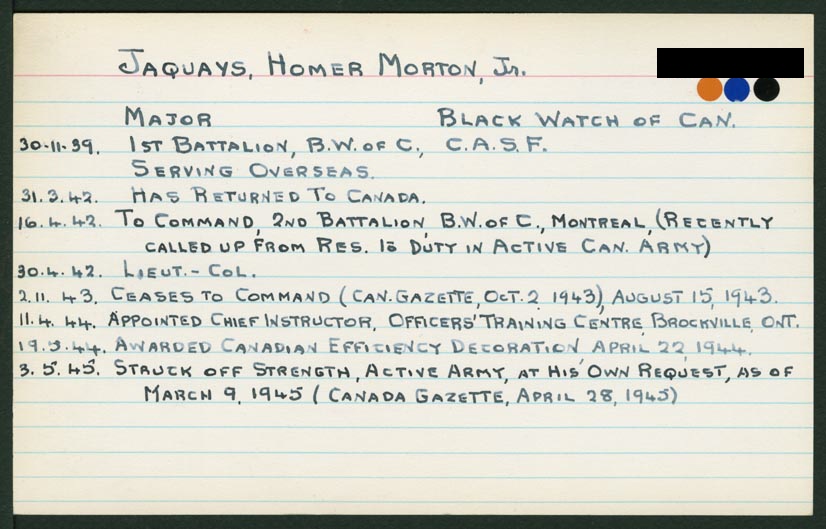 JAQUAYS, HOMER MORTON, Jr.
MAJOR BLACK WATCH OF CAN.
30-11-39. 1ST BATTALION, B.W. OF C., C.A.S.F.
SERVING OVERSEAS.
31.3.42. HAS RETURNED TO CANADA.
16.4.42. TO COMMAND, 2ND BATTALION, B.W. OF C., MONTREAL, (RECENTLY
CALLED UP FROM RES. TO DUTY IN ACTIVE CAN. ARMY)
30.4.42. LIEUT.-COL.
2.11.43. CEASES TO COMMAND (CAN. GAZETTE, OCT. 2 1943), AUGUST 15, 1943.
11.4.44. APPOINTED CHIEF INSTRUCTOR, OFFICERS' TRAINING CENTRE, BROCKVILLE, ONT.
19.5.44. AWARDED CANADIAN EFFICIENCY DECORATION APRIL 22, 1944.
3.5.45. STRUCK OFF STRENGTH, ACTIVE ARMY, AT HIS OWN REQUEST, AS OF
MARCH 9, 1945 (CANADA GAZETTE, APRIL 28, 1945)